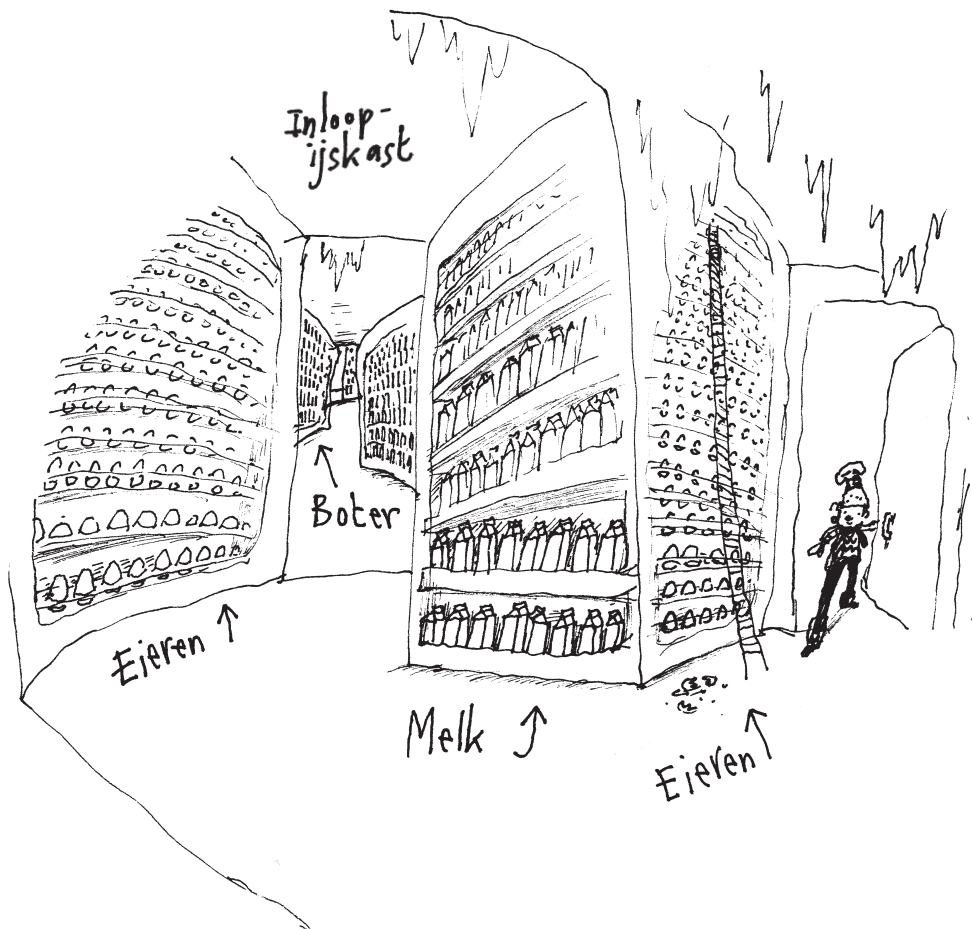 Inloop-
ijskast
Boter
Eieren
Melk
Eieren